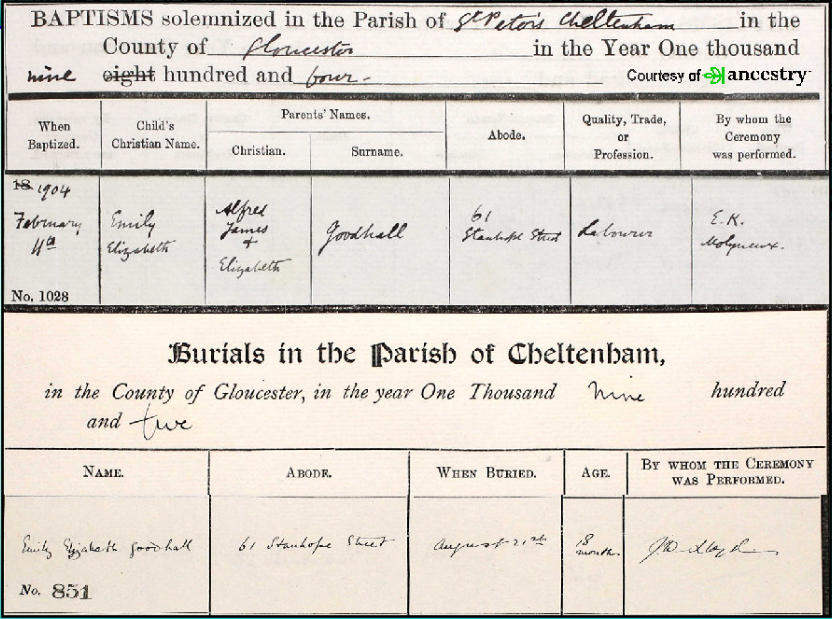 BAPTISMS solemnized in the Parish of St Peter's Cheltenham in the
County of Gloucester in the Year One thousand
nine eight hundred and four.
Courtesy of ancestry
When Baptized.
Child's Christian Name.
Parents' Names.
Christian.
Surname.
Abode.
Quality, Trade, or Profession.
By whom the Ceremony was performed.
18 1904
February
4th
Emily
Elizabeth
Alfred
James
+
Elizabeth
Goodhall
61
Stanhope Street
Labourer
E.K.
Molyneux.
No. 1028
Burials in the Parish of Cheltenham,
in the County of Gloucester, in the year One Thousand nine hundred
and five
NAME.
ABODE.
WHEN BURIED.
AGE.
BY WHOM THE CEREMONY
WAS PERFORMED.
Emily Elizabeth Goodhall
61 Stanhope Street
August 21st
18
months.
No. 851